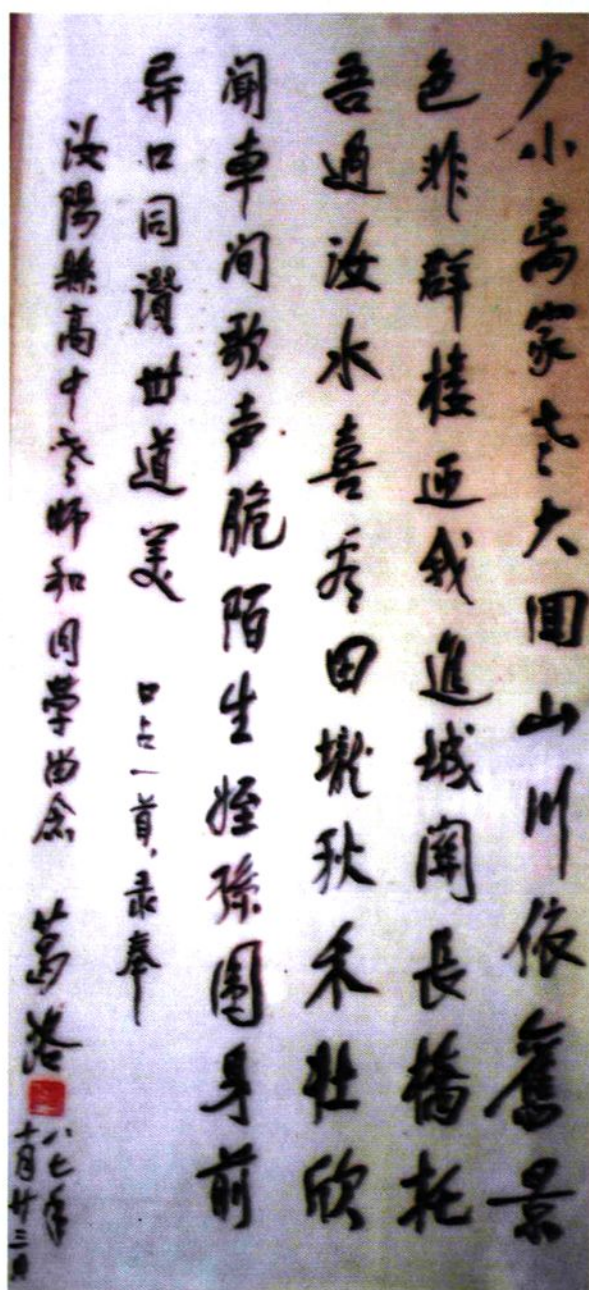 少小离家老大回山川依舊景
色非群楼迎我進城關長橋托
吾過汝水喜看田壠秋禾壮欣
聞車间歌声脆陌生姪孫圍身前
异口同讚世道美 口占一首，录奉
汝陽縣高中老師和同學留念 葛洛
八七年
十月廿三日